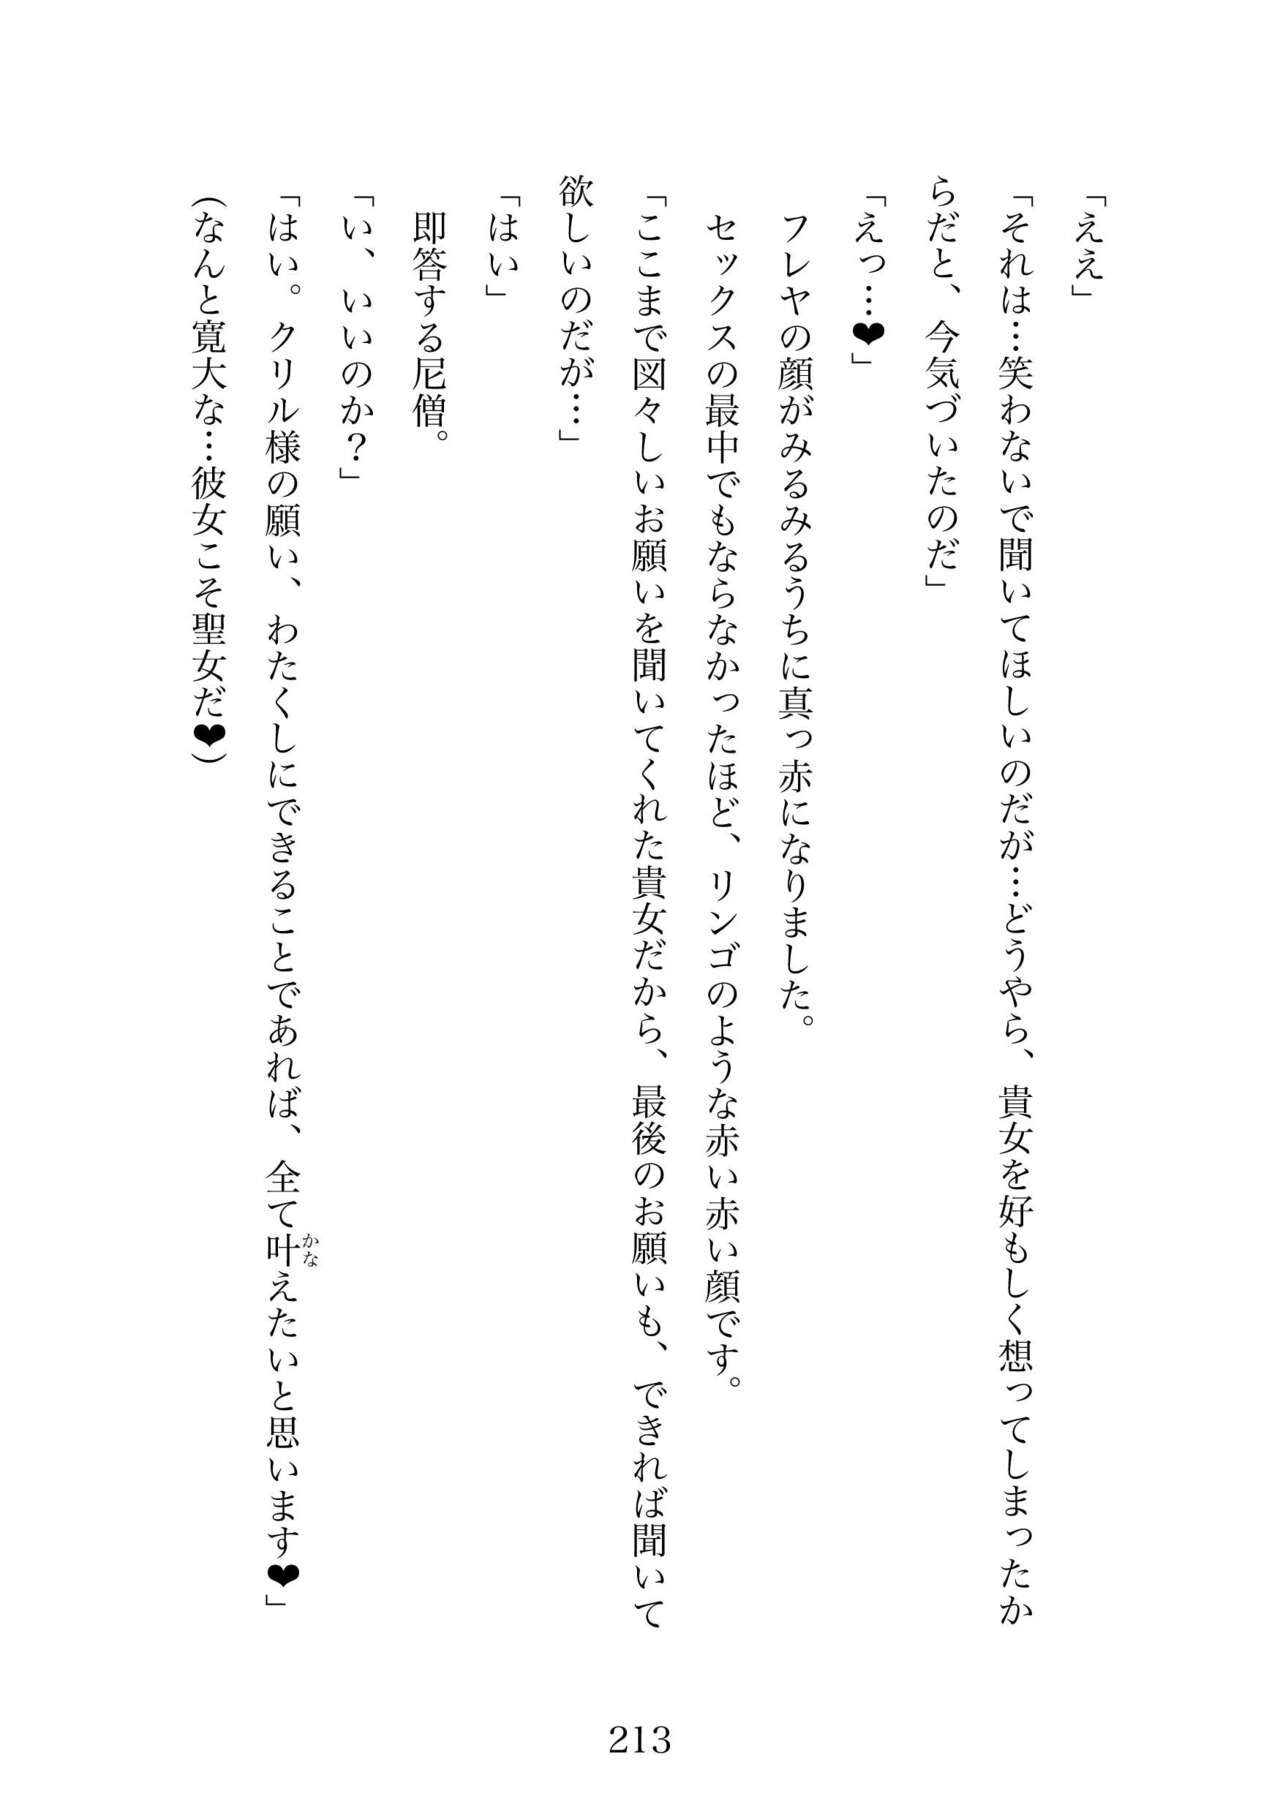 「ええ」
「それは…笑わないで聞いてほしいのだが…どうやら、貴女を好もしく想ってしまったか
らだと、今気づいたのだ」
「えっ…❤」
フレヤの顔がみるみるうちに真っ赤になりました。
セックスの最中でもならなかったほど、リンゴのような赤い赤い顔です。
「ここまで図々しいお願いを聞いてくれた貴女だから、最後のお願いも、できれば聞いて
欲しいのだが…」
「はい」
即答する尼僧。
「い、いいのか？」
「はい。クリル様の願い、わたくしにできることであれば、全て叶えたいと思います❤」
かな
(なんと寛大な…彼女こそ聖女だ❤)
213